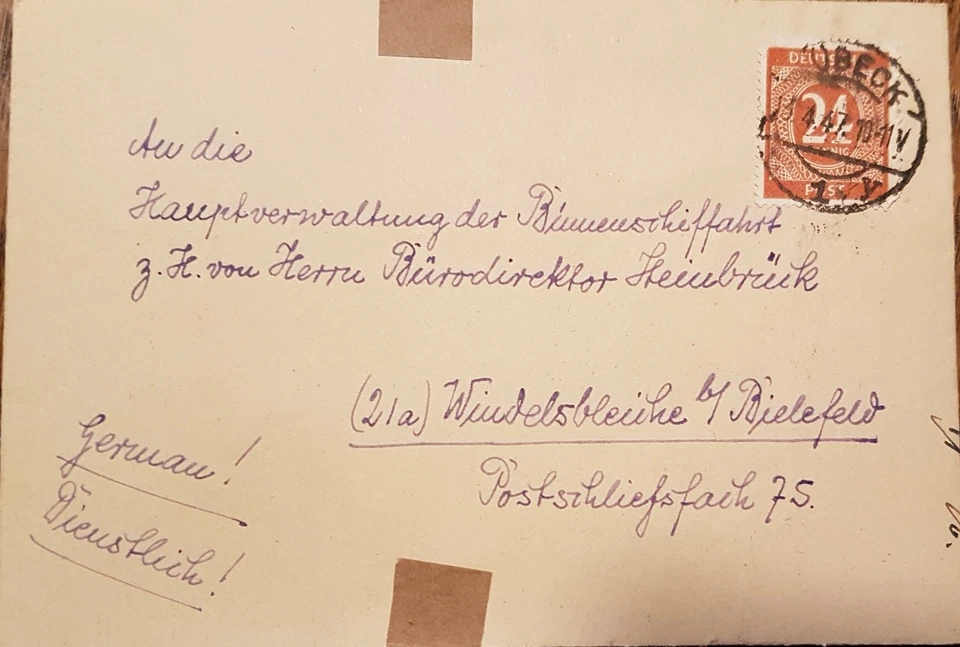 DEUTSCHE
24
PFENNIG
POST
BECK
4.47.10-11V
1 y
An die
Hauptverwaltung der Binnenschiffahrt
z. H. von Herrn Bürodirektor Heinbrück
(21a) Windelsbleiche b/ Bielefeld
Postschließfach 75.
German!
Dienstlich!